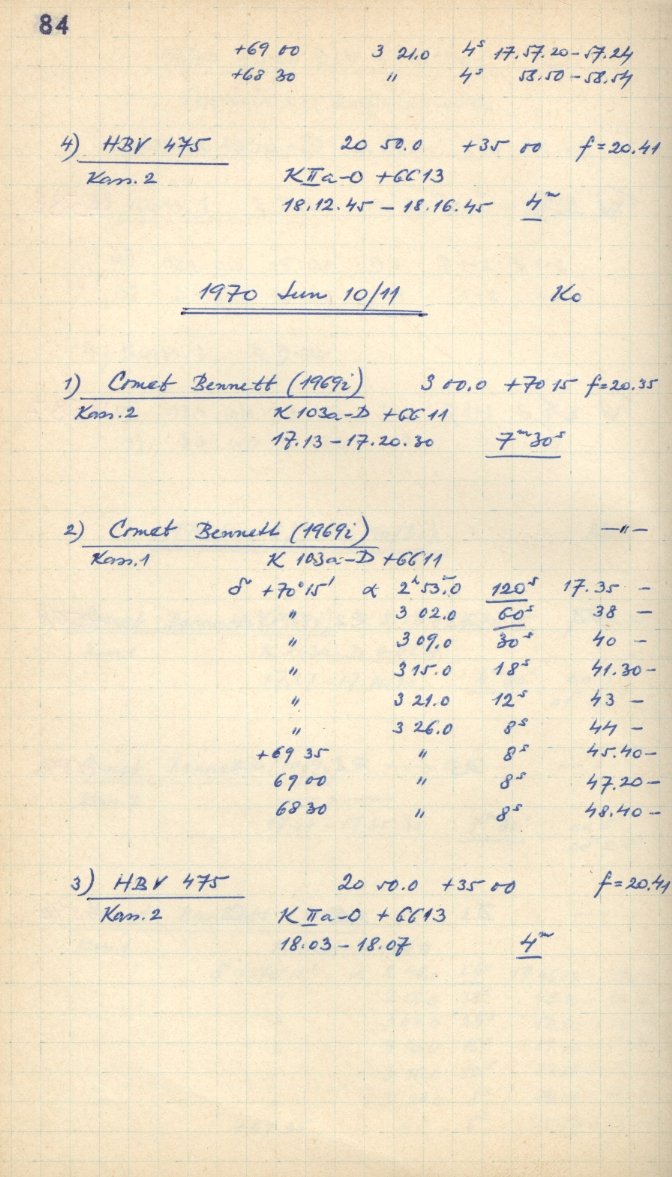 84
+69 00 3 21.0 4ˢ 17.57.20-57.24
+68 30 " 4ˢ 58.50-58.54
4) HBV 475 20 50.0 +35 00 f=20.41
Kass.2 K IIa-O +GG13
18.12.45 – 18.16.45 4ᵐ
1970 Jun 10/11 Ko
1) Comet Bennett (1969i) 3 00.0 +70 15 f=20.35
Kass.2 K 103a-D +GG11
17.13 – 17.20.30 7ᵐ30ˢ
2) Comet Bennett (1969i) —"—
Kass.1 K 103a-D +GG11
δ +70°15' α 2ʰ53ᵐ.0 120ˢ 17.35 –
" 3 02.0 60ˢ 38 –
" 3 09.0 30ˢ 40 –
" 3 15.0 18ˢ 41.30–
" 3 21.0 12ˢ 43 –
" 3 26.0 8ˢ 44 –
+69 35 " 8ˢ 45.40–
69 00 " 8ˢ 47.20–
68 30 " 8ˢ 48.40–
3) HBV 475 20 50.0 +35 00 f=20.41
Kass.2 K IIa-O +GG13
18.03 – 18.07 4ᵐ